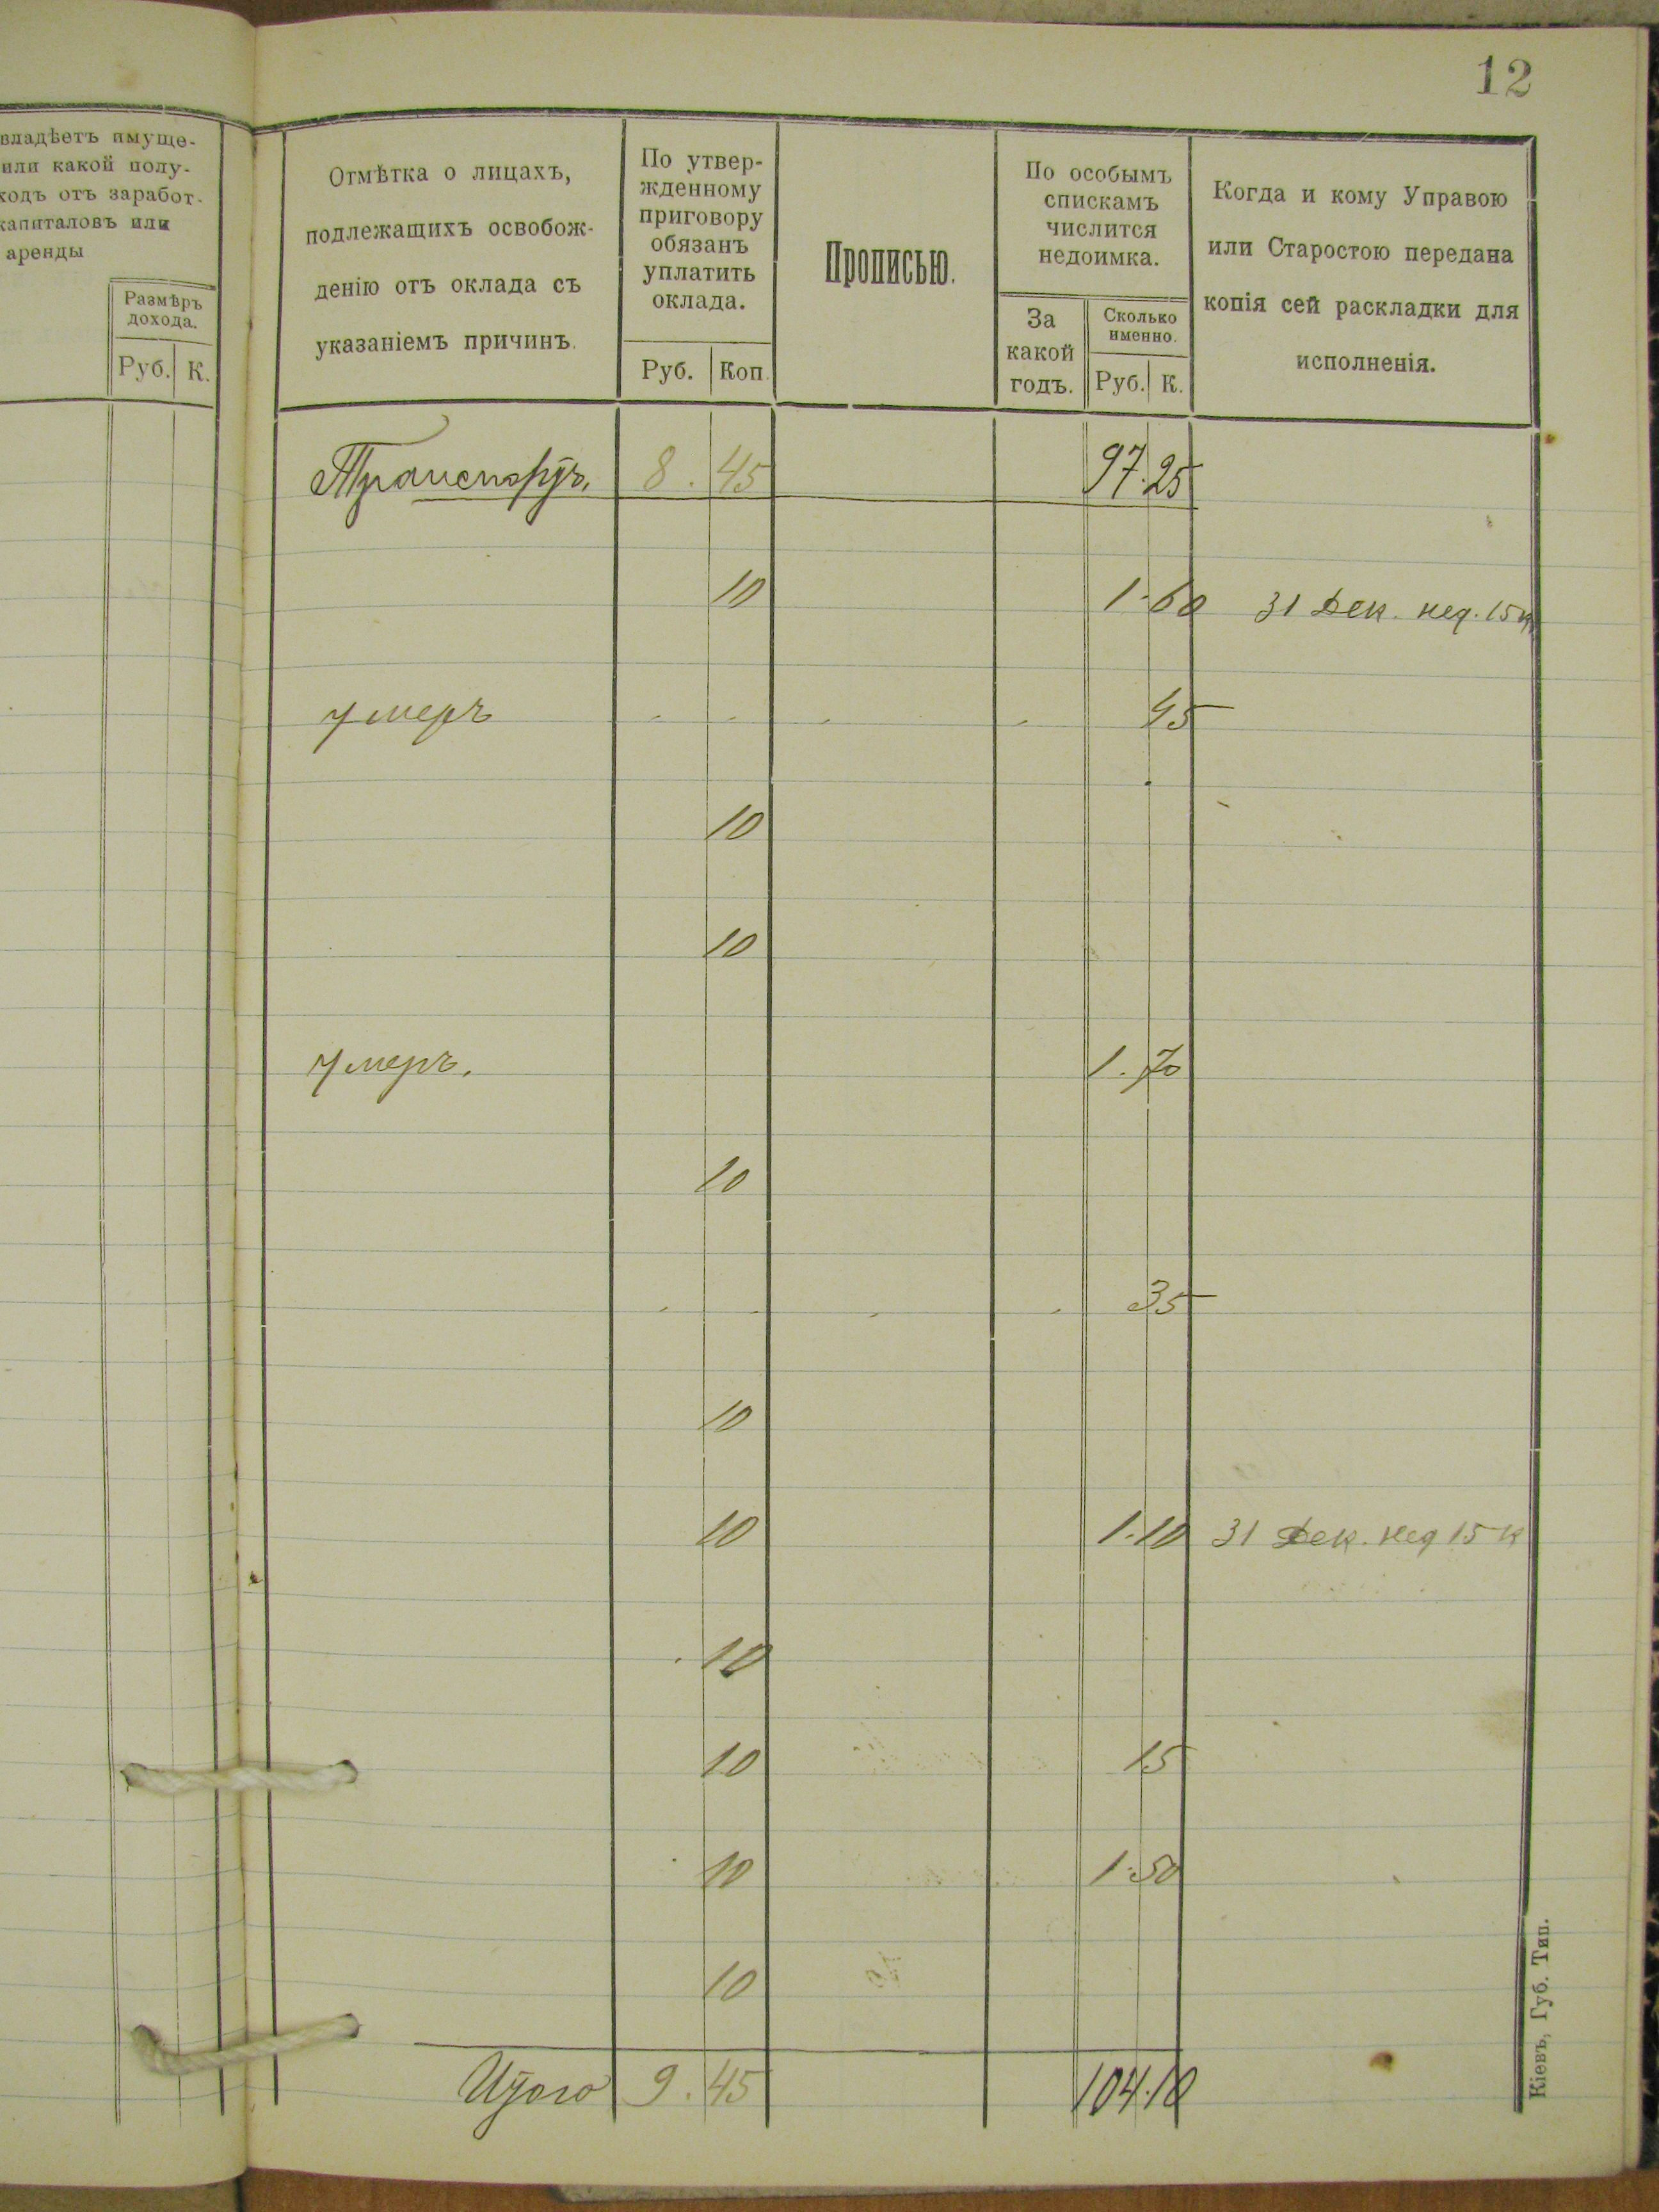 12
владѣетъ имуще-
или какой полу-
ходъ отъ заработ-
капиталовъ или
аренды
Размѣръ
дохода.
Руб. К.
Отмѣтка о лицахъ,
подлежащихъ освобож-
денію отъ оклада съ
указаніемъ причинъ.
По утвер-
жденному
приговору
обязанъ
уплатить
оклада.
Руб. Коп.
Прописью.
По особымъ
спискамъ
числится
недоимка.
За
какой
годъ.
Сколько
именно.
Руб. К.
Когда и кому Управою
или Старостою передана
копія сей раскладки для
исполненія.
Транспортъ. 8. 45 97. 25
10 1. 60 31 Дек. нед. 15 к
умеръ 45
10
10
умеръ. 1. 70
10
35
10
10 1. 10 31 Дек. нед 15 к
10
10 15
10 1. 50
10
Итого 9. 45 104. 10
Кіевъ, Губ. Тип.